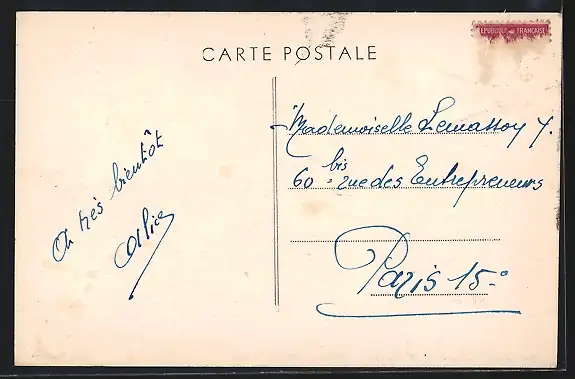 CARTE POSTALE
REPUBLIQUE FRANÇAISE
A très bientôt
Alice
Mademoiselle Lemassoy Y.
60 bis rue des Entrepreneurs
Paris 15°